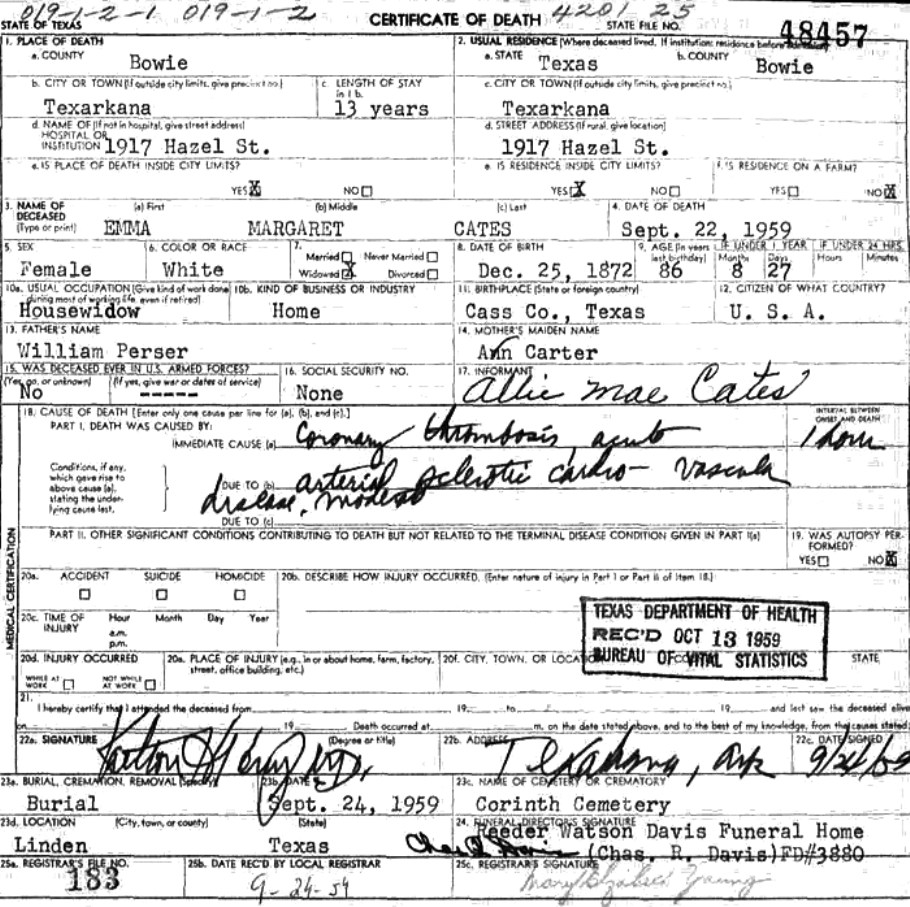 019-1-2-1 019-1-2 4201 25
STATE OF TEXAS CERTIFICATE OF DEATH STATE FILE NO. 48457
1. PLACE OF DEATH 2. USUAL RESIDENCE (Where deceased lived. If institution: residence before
a. COUNTY Bowie a. STATE Texas b. COUNTY Bowie
b. CITY OR TOWN (If outside city limits, give precinct no.) c. LENGTH OF STAY in 1 b. c. CITY OR TOWN (If outside city limits, give precinct no.)
Texarkana 13 years Texarkana
d. NAME OF (If not in hospital, give street address) d. STREET ADDRESS (If rural, give location)
HOSPITAL OR
INSTITUTION 1917 Hazel St. 1917 Hazel St.
e. IS PLACE OF DEATH INSIDE CITY LIMITS? e. IS RESIDENCE INSIDE CITY LIMITS? f. IS RESIDENCE ON A FARM?
YES X NO YES X NO YES NO X
3. NAME OF DECEASED (Type or print) (a) First (b) Middle (c) Last 4. DATE OF DEATH
EMMA MARGARET CATES Sept. 22, 1959
5. SEX 6. COLOR OR RACE 7. Married Never Married 8. DATE OF BIRTH 9. AGE (In years last birthday) IF UNDER 1 YEAR IF UNDER 24 HRS.
Months Days Hours Minutes
Female White Widowed X Divorced Dec. 25, 1872 86 8 27
10a. USUAL OCCUPATION (Give kind of work done during most of working life, even if retired) 10b. KIND OF BUSINESS OR INDUSTRY 11. BIRTHPLACE (State or foreign country) 12. CITIZEN OF WHAT COUNTRY?
Housewidow Home Cass Co., Texas U. S. A.
13. FATHER'S NAME 14. MOTHER'S MAIDEN NAME
William Perser Ann Carter
15. WAS DECEASED EVER IN U.S. ARMED FORCES? 16. SOCIAL SECURITY NO. 17. INFORMANT
(Yes, no, or unknown) (If yes, give war or dates of service)
No ----- None Allie Mae Cates
18. CAUSE OF DEATH [Enter only one cause per line for (a), (b), and (c).] INTERVAL BETWEEN ONSET AND DEATH
PART I. DEATH WAS CAUSED BY:
IMMEDIATE CAUSE (a) Coronary thrombosis, acute 1 hour
Conditions, if any, which gave rise to above cause (a), stating the underlying cause last.
DUE TO (b) arterial sclerotic cardio-vascular
disease,
DUE TO (c)
PART II. OTHER SIGNIFICANT CONDITIONS CONTRIBUTING TO DEATH BUT NOT RELATED TO THE TERMINAL DISEASE CONDITION GIVEN IN PART I(a) 19. WAS AUTOPSY PERFORMED?
YES NO X
MEDICAL CERTIFICATION
20a. ACCIDENT SUICIDE HOMICIDE 20b. DESCRIBE HOW INJURY OCCURRED. (Enter nature of injury in Part I or Part II of Item 18.)
20c. TIME OF INJURY Hour Month Day Year
a.m.
p.m.
TEXAS DEPARTMENT OF HEALTH
REC'D OCT 13 1959
BUREAU OF VITAL STATISTICS
20d. INJURY OCCURRED 20e. PLACE OF INJURY (e.g., in or about home, farm, factory, street, office building, etc.) 20f. CITY, TOWN, OR LOCATION STATE
WHILE AT WORK NOT WHILE AT WORK
21.
I hereby certify that I attended the deceased from 19 to 19 and last saw the deceased alive
on 19 Death occurred at m. on the date stated above, and to the best of my knowledge, from the causes stated.
22a. SIGNATURE (Degree or title) 22b. ADDRESS 22c. DATE SIGNED
Texarkana, Ark 9/24/59
23a. BURIAL, CREMATION, REMOVAL (Specify) 23b. DATE 23c. NAME OF CEMETERY OR CREMATORY
Burial Sept. 24, 1959 Corinth Cemetery
23d. LOCATION (City, town, or county) (State) 24. FUNERAL DIRECTOR'S SIGNATURE
Reeder Watson Davis Funeral Home
Linden Texas Chas R Davis (Chas. R. Davis)FD#3880
25a. REGISTRAR'S FILE NO. 25b. DATE REC'D BY LOCAL REGISTRAR 25c. REGISTRAR'S SIGNATURE
183 9-24-59 Mary Elizabeth Young